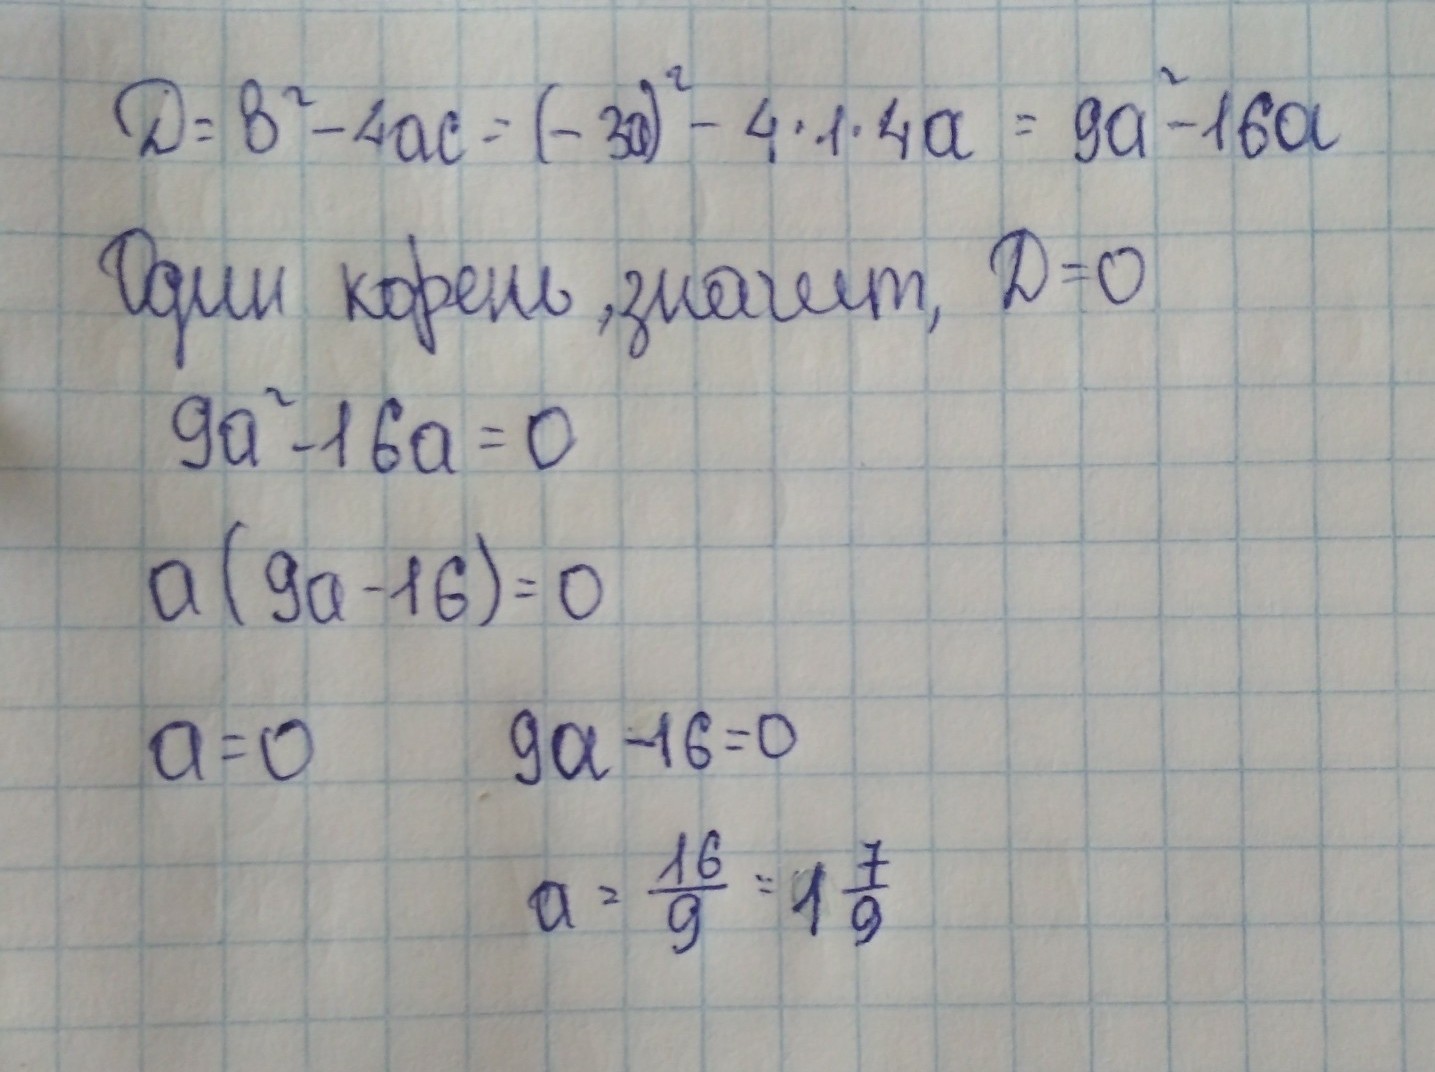 D = в² - 4ac = (-3a)² - 4·1·4a = 9a² - 16a
Один корень, значит, D = 0
9a² - 16a = 0
a(9a - 16) = 0
a = 0 9a - 16 = 0
a = 16/9 = 1 7/9